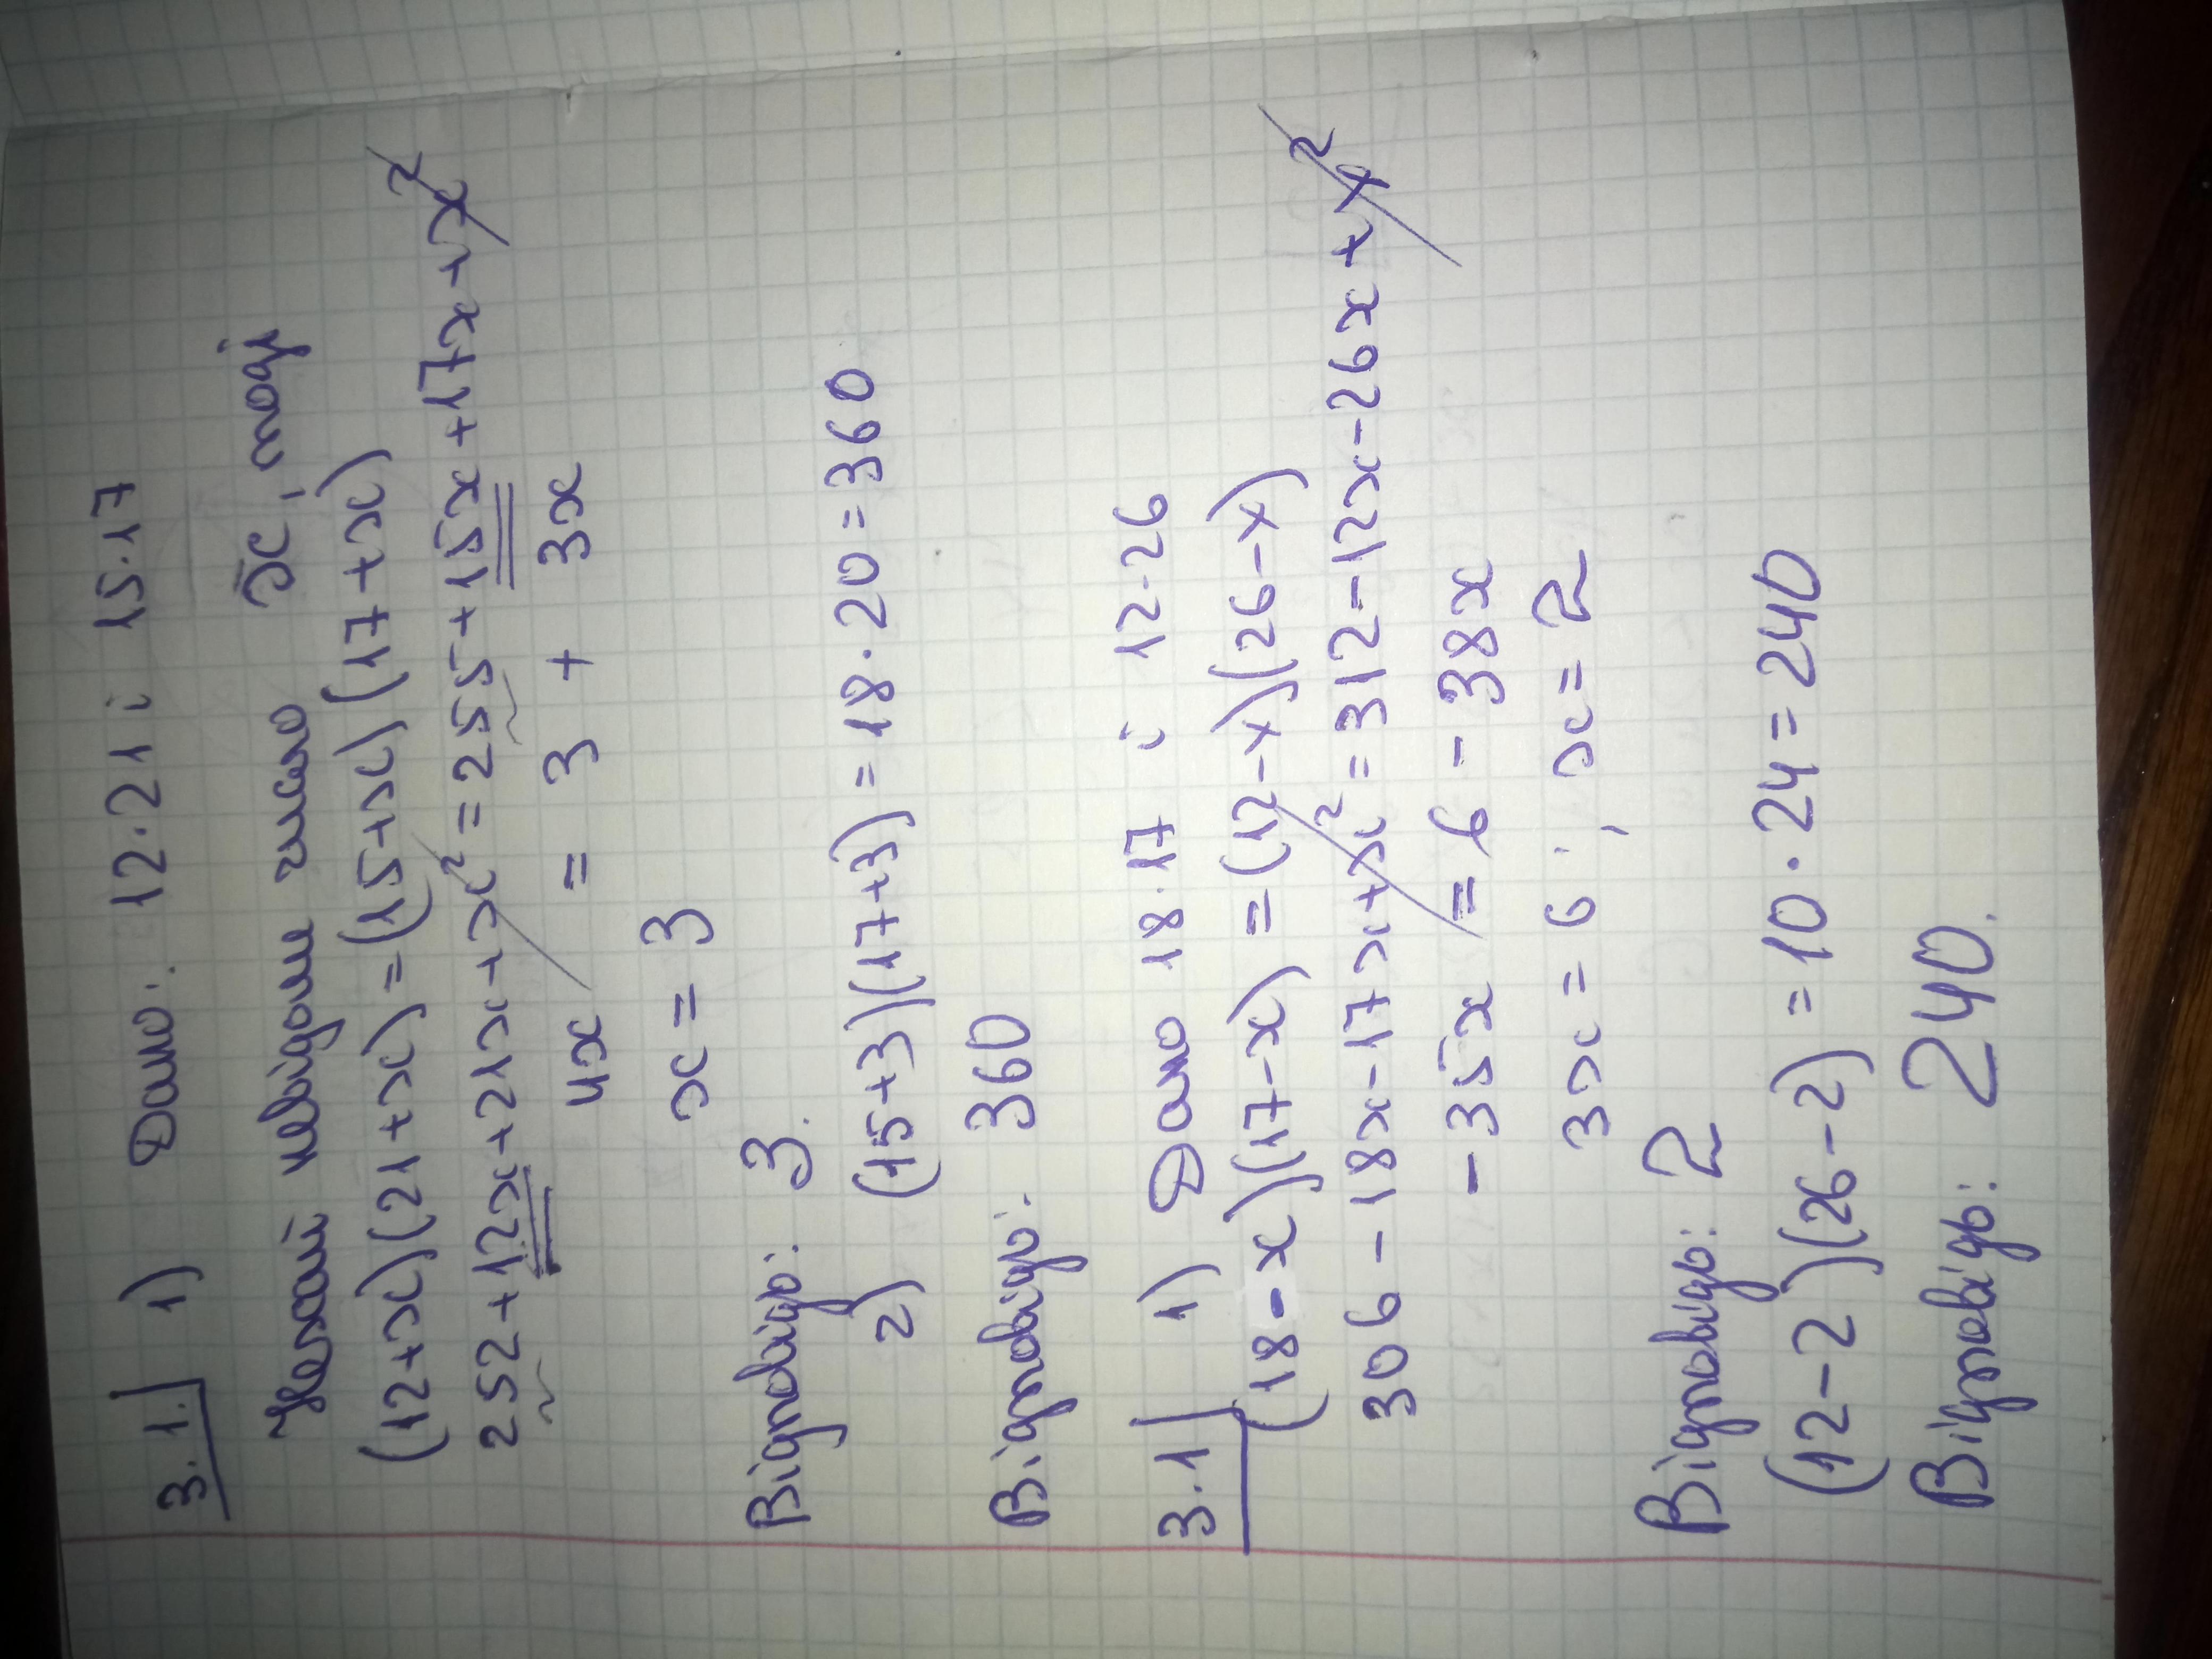 3.1. 1) Дано: 12·21 і 15·17
Нехай невідоме число x, тоді
(12+x)(21+x)=(15+x)(17+x)
252+12x+21x+x²=255+15x+17x+x²
4x = 3 + 3x
x=3
Відповідь: 3.
2) (15+3)(17+3)=18·20=360
Відповідь: 360
3.1 1) Дано 18·17 і 12·26
(18-x)(17-x)=(12-x)(26-x)
306-18x-17x+x²=312-12x-26x+x²
-35x = 6 - 38x
3x=6; x=2
Відповідь: 2
(12-2)(26-2)=10·24=240
Відповідь: 240.